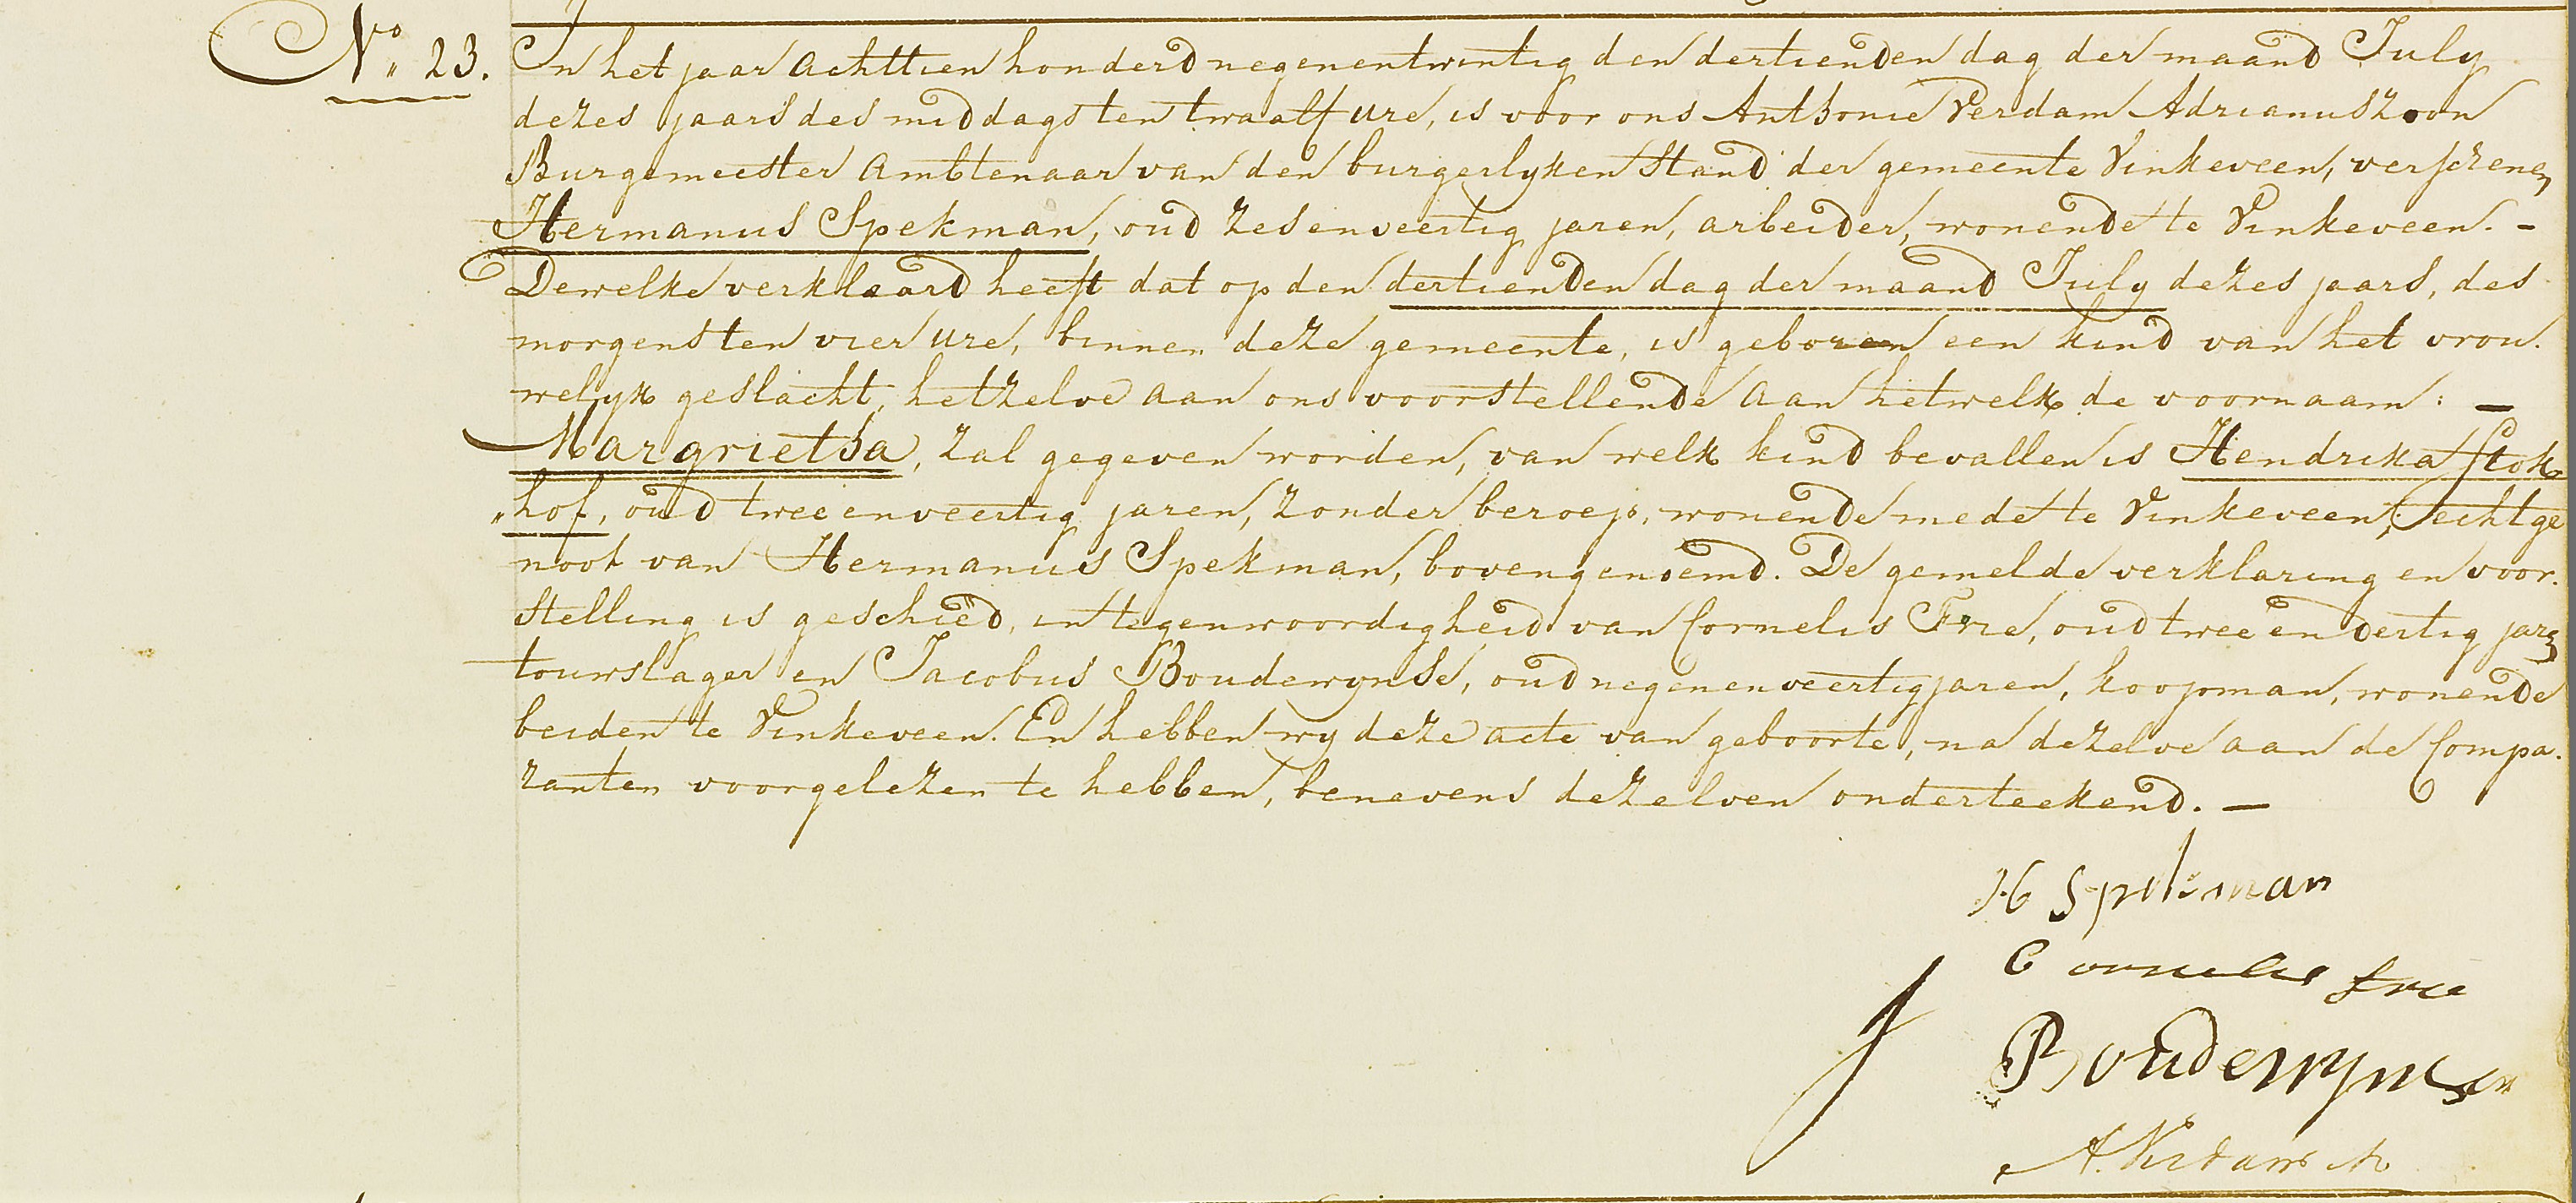 No. 23. In het jaar achttien honderd negenentwintig den dertienden dag der maand July
dezes jaars des middags ten twaalf ure, is voor ons Anthonie Verdam Adrianuszoon
Burgemeester Ambtenaar van den burgerlyken Stand der gemeente Vinkeveen, verschenen
Hermanus Spekman, oud zesenveertig jaren, arbeider, wonende te Vinkeveen. -
Dewelke verklaard heeft dat op den dertienden dag der maand July dezes jaars, des
morgens ten vier ure, binnen deze gemeente, is geboren een kind van het vrou-
welyk geslacht, hetzelve aan ons voorstellende aan hetwelk de voornaam: —
Margrietha, zal gegeven worden, van welk kind bevallen is Hendrika Stok
"hof, oud tweeenveertig jaren, zonder beroep, wonende mede te Vinkeveen, echtge
noot van Hermanus Spekman, bovengenoemd. De gemelde verklaring en voor-
stelling is geschiëd, in tegenwoordigheid van Cornelis Frie, oud twee en dertig jaren
touwslager en Jacobus Boudewynse, oud negenenveertig jaren, koopman, wonende
beiden te Vinkeveen. En hebben wy deze acte van geboorte, na dezelve aan de Compa-
ranten voorgelezen te hebben, benevens dezelven onderteekend. —
H Spekman
Cornelis Frie
J Boudewynse
A. Verdam